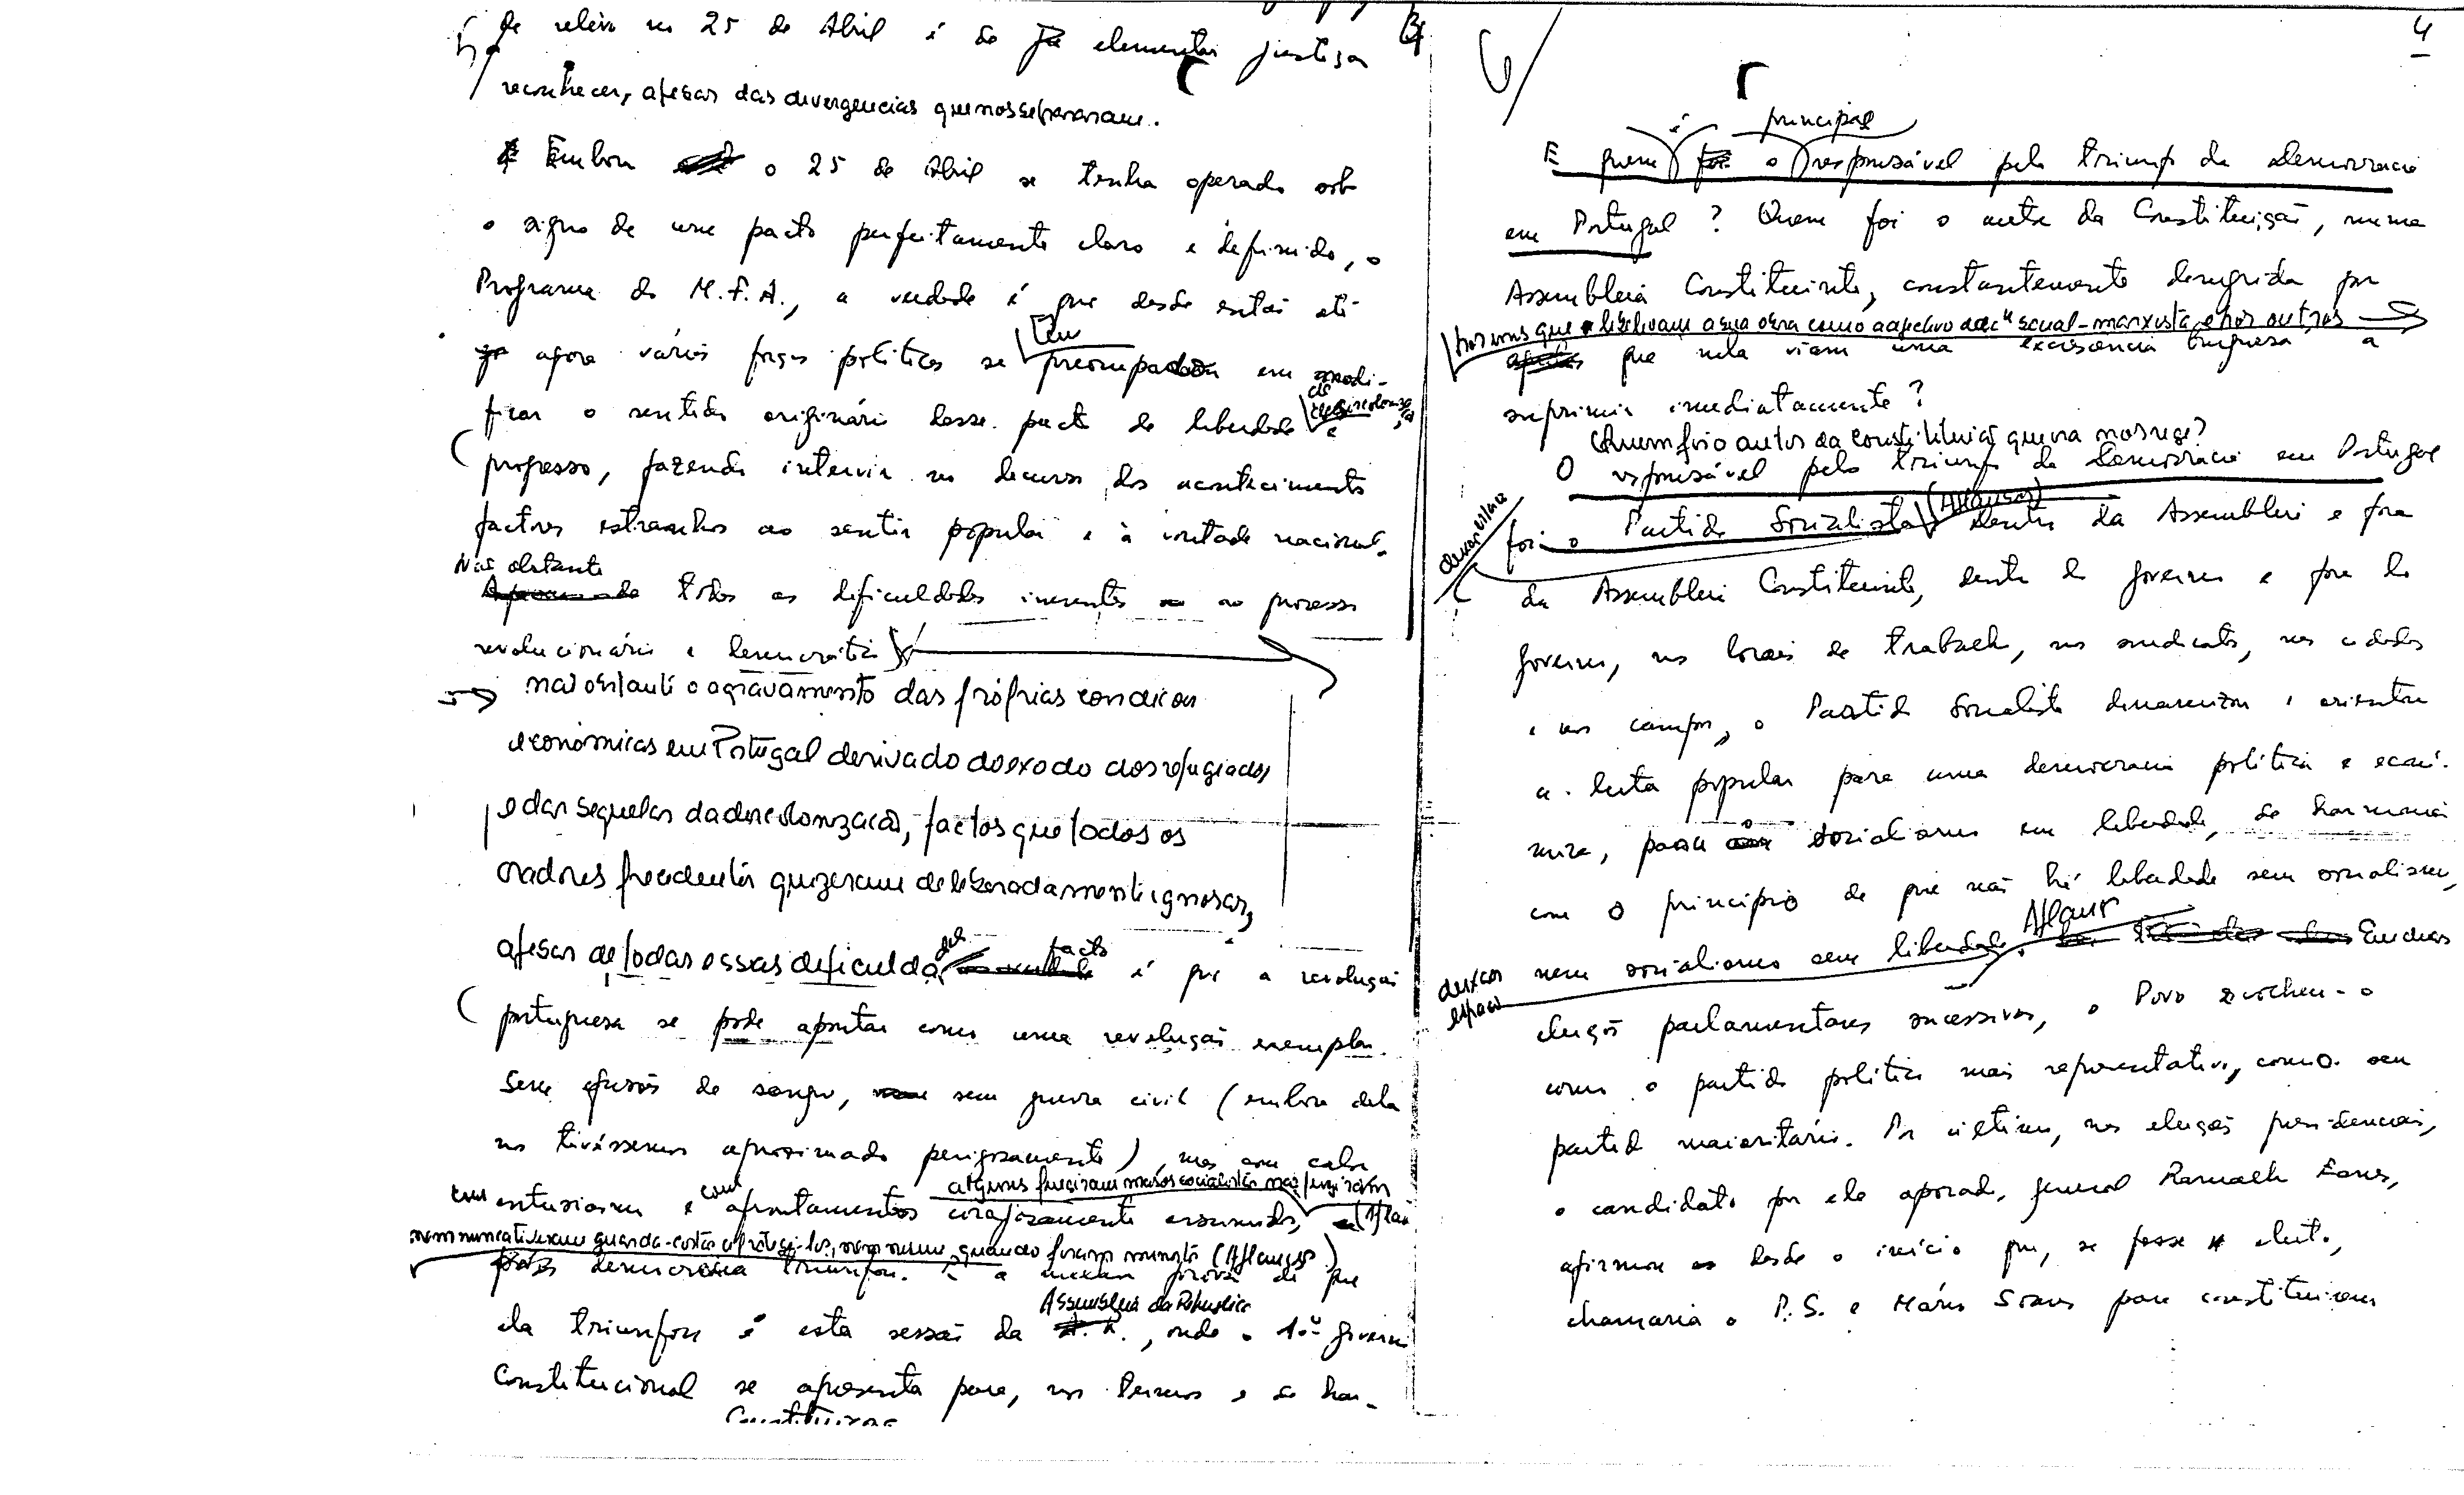 de relevo no 25 de Abril é de elementar justiça
reconhecer, apesar das divergencias que nos separaram.
Embora o 25 de Abril se tenha operado sob
o signo de um pacto perfeitamente claro e definido, o
Programa do M.F.A., a verdade é que desde então até
agora várias forças políticas se têm preocupado em modi-
ficar o sentido originário desse pacto de liberdade de descolonização e
progresso, fazendo intervir no decurso dos acontecimentos
factores estranhos ao sentir popular e à vontade nacional.
Não obstante
todas as dificuldades inerentes ao processo
revolucionário e democrático
não obstante o agravamento das próprias condições
económicas em Portugal derivado do exodo dos refugiados
e das sequelas da descolonização, factos que todos os
oradores precedentes quizeram deliberadamente ignorar,
apesar de todas essas dificuldades facto é que a revolução
portuguesa se pode apontar como uma revolução exemplar.
Sem efusões de sangue, sem guerra civil (embora dela
nos tivéssemos aproximado perigosamente), mas com calor
alguns fugiram mas os socialistas não fugiram
com entusiasmo e com afrontamentos corajosamente assumidos,
nem nunca tiveram guarda-costas a protegê-los, nem mesmo quando foram ministros (Aplausos)
democracia triunfou. E a maior prova de que
Assembleia da Republica
ela triunfou é esta sessão da A. R., onde o 1.º governo
Constitucional se apresenta para, nos termos e de har-
Constituição
4
6
é principal
E quem foi o responsável pelo triunfo da democracia
em Portugal? Quem foi o autor da Constituição, numa
Assembleia Constituinte, constantemente denegrida por
por uns que a obra como adjectivo de social-marxista e por outros
que nela viam uma excrescencia burguesa a
suprimir imediatamente?
Quem foi o autor da constituição que ora nos rege?
O responsável pelo triunfo da democracia em Portugal
foi o Partido Socialista (Aplausos) Dentro da Assembleia e fora
da Assembleia Constituinte, dentro do governo e fora do
governo, nos locais de trabalho, nos sindicatos, nas cidades
e nos campos, o Partido Socialista dinamizou e orientou
a luta popular para uma democracia política e econó-
mica, para o socialismo em liberdade, de harmonia
com o princípio de que não há liberdade sem socialismo,
Aplausos
deixar espaço
nem socialismo sem liberdade. Em duas
eleições parlamentares sucessivas, o Povo escolheu-o
como o partido político mais representativo, como o seu
partido maioritário. Por último, nas eleições presidenciais,
o candidato por ele apoiado, general Ramalho Eanes,
afirmou desde o início que, se fosse eleito,
chamaria o P.S. e Mário Soares para constituirem